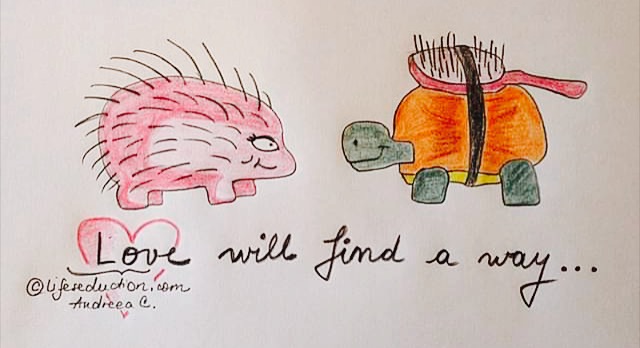 Love will find a way...
©lifeseduction.com
Andreea C.